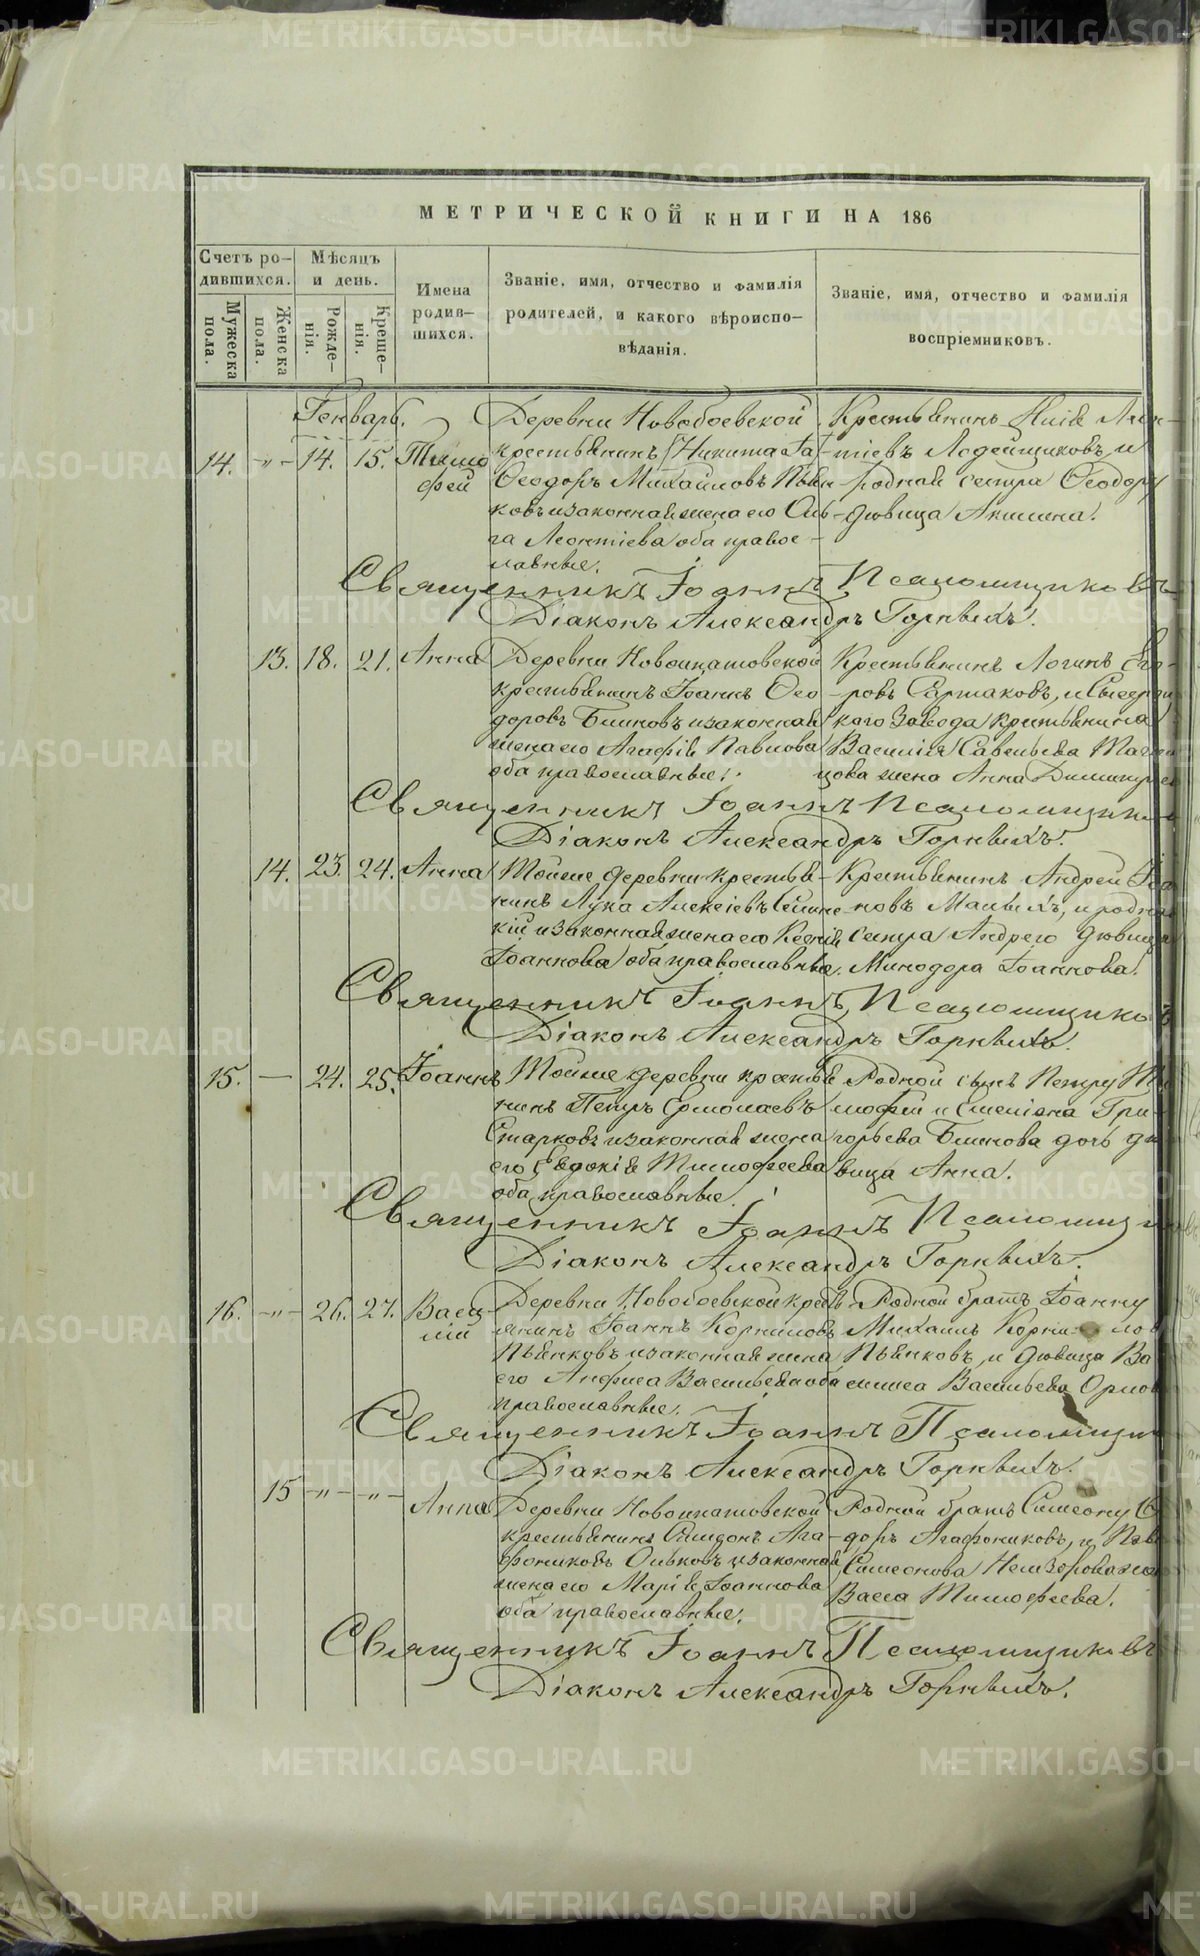 МЕТРИЧЕСКОЙ КНИГИ НА 186
Счетъ ро-
дившихся.
Мужеска
пола.
Женска
пола.
Мѣсяцъ
и день.
Рожде-
нія.
Креще-
нія.
Имена
родив-
шихся.
Званіе, имя, отчество и фамилія
родителей, и какого вѣроиспо-
вѣданія.
Званіе, имя, отчество и фамилія
воспріемниковъ.
Генварь.
14. -„- 14. 15. Тимо
фей
Деревни Новобоевской
крестьянинъ
Ѳеодоръ Михайловъ Пьян
ковъ и законная жена его Оль-
га Леонтіева оба право-
славные.
Крестьянинъ
тіевъ Лодейщиковъ, и
родная сестра Ѳеодору
дѣвица Акилина.
Священникъ Іоаннъ Псаломщиковъ
Діаконъ Александръ Горныхъ.
13. 18. 21. Анна
Деревни Новоипатовской
крестьянинъ Іоаннъ Ѳео
доровъ Блиновъ и законная
жена его Агафія Павлова
оба православные.
Крестьянинъ Логинъ
ровъ Сартаковъ, и
каго завода крестьянина
Василія Савельева
цова жена Анна
Священникъ Іоаннъ
Діаконъ Александръ Горныхъ.
14. 23. 24. Анна
Тойже деревни крестья-
нинъ Лука Алексіевъ
кій и законная жена его Ксенія
Іоаннова оба православные.
Крестьянинъ Андрей
новъ Малыхъ, и
сестра Андрею
Минодора Іоаннова.
Священникъ Іоаннъ Псаломщиковъ
Діаконъ Александръ Горныхъ.
15. — 24. 25. Іоаннъ
Тойже деревни крестья
нинъ Петръ Ермолаевъ
Старковъ и законная жена
его Евдокія Тимофеева
оба православные.
Родной сынъ Петру
мофей и Симеона Гри-
горьева Блинова дочь
вица Анна.
Священникъ Іоаннъ
Діаконъ Александръ Горныхъ.
16. -„- 26. 27. Васи
лій
Деревни Новобоевской крест
янинъ Іоаннъ Корниловъ
Пьянковъ и законная жена
его Анфиса Васильева оба
православные.
Родной братъ Іоанну
Михаилъ
Пьянковъ, и дѣвица Ва
Васильева
Священникъ Іоаннъ
Діаконъ Александръ Горныхъ.
15 -„- -„- Анна
Деревни Новоипатовской
крестьянинъ Ага-
фониковъ Ольковъ и законная
жена его Марія Іоаннова
оба православные.
Родной братъ Симеону
доръ Агафониковъ, и
Симеонова
Васса Тимофеева.
Священникъ Іоаннъ Псаломщиковъ
Діаконъ Александръ Горныхъ.